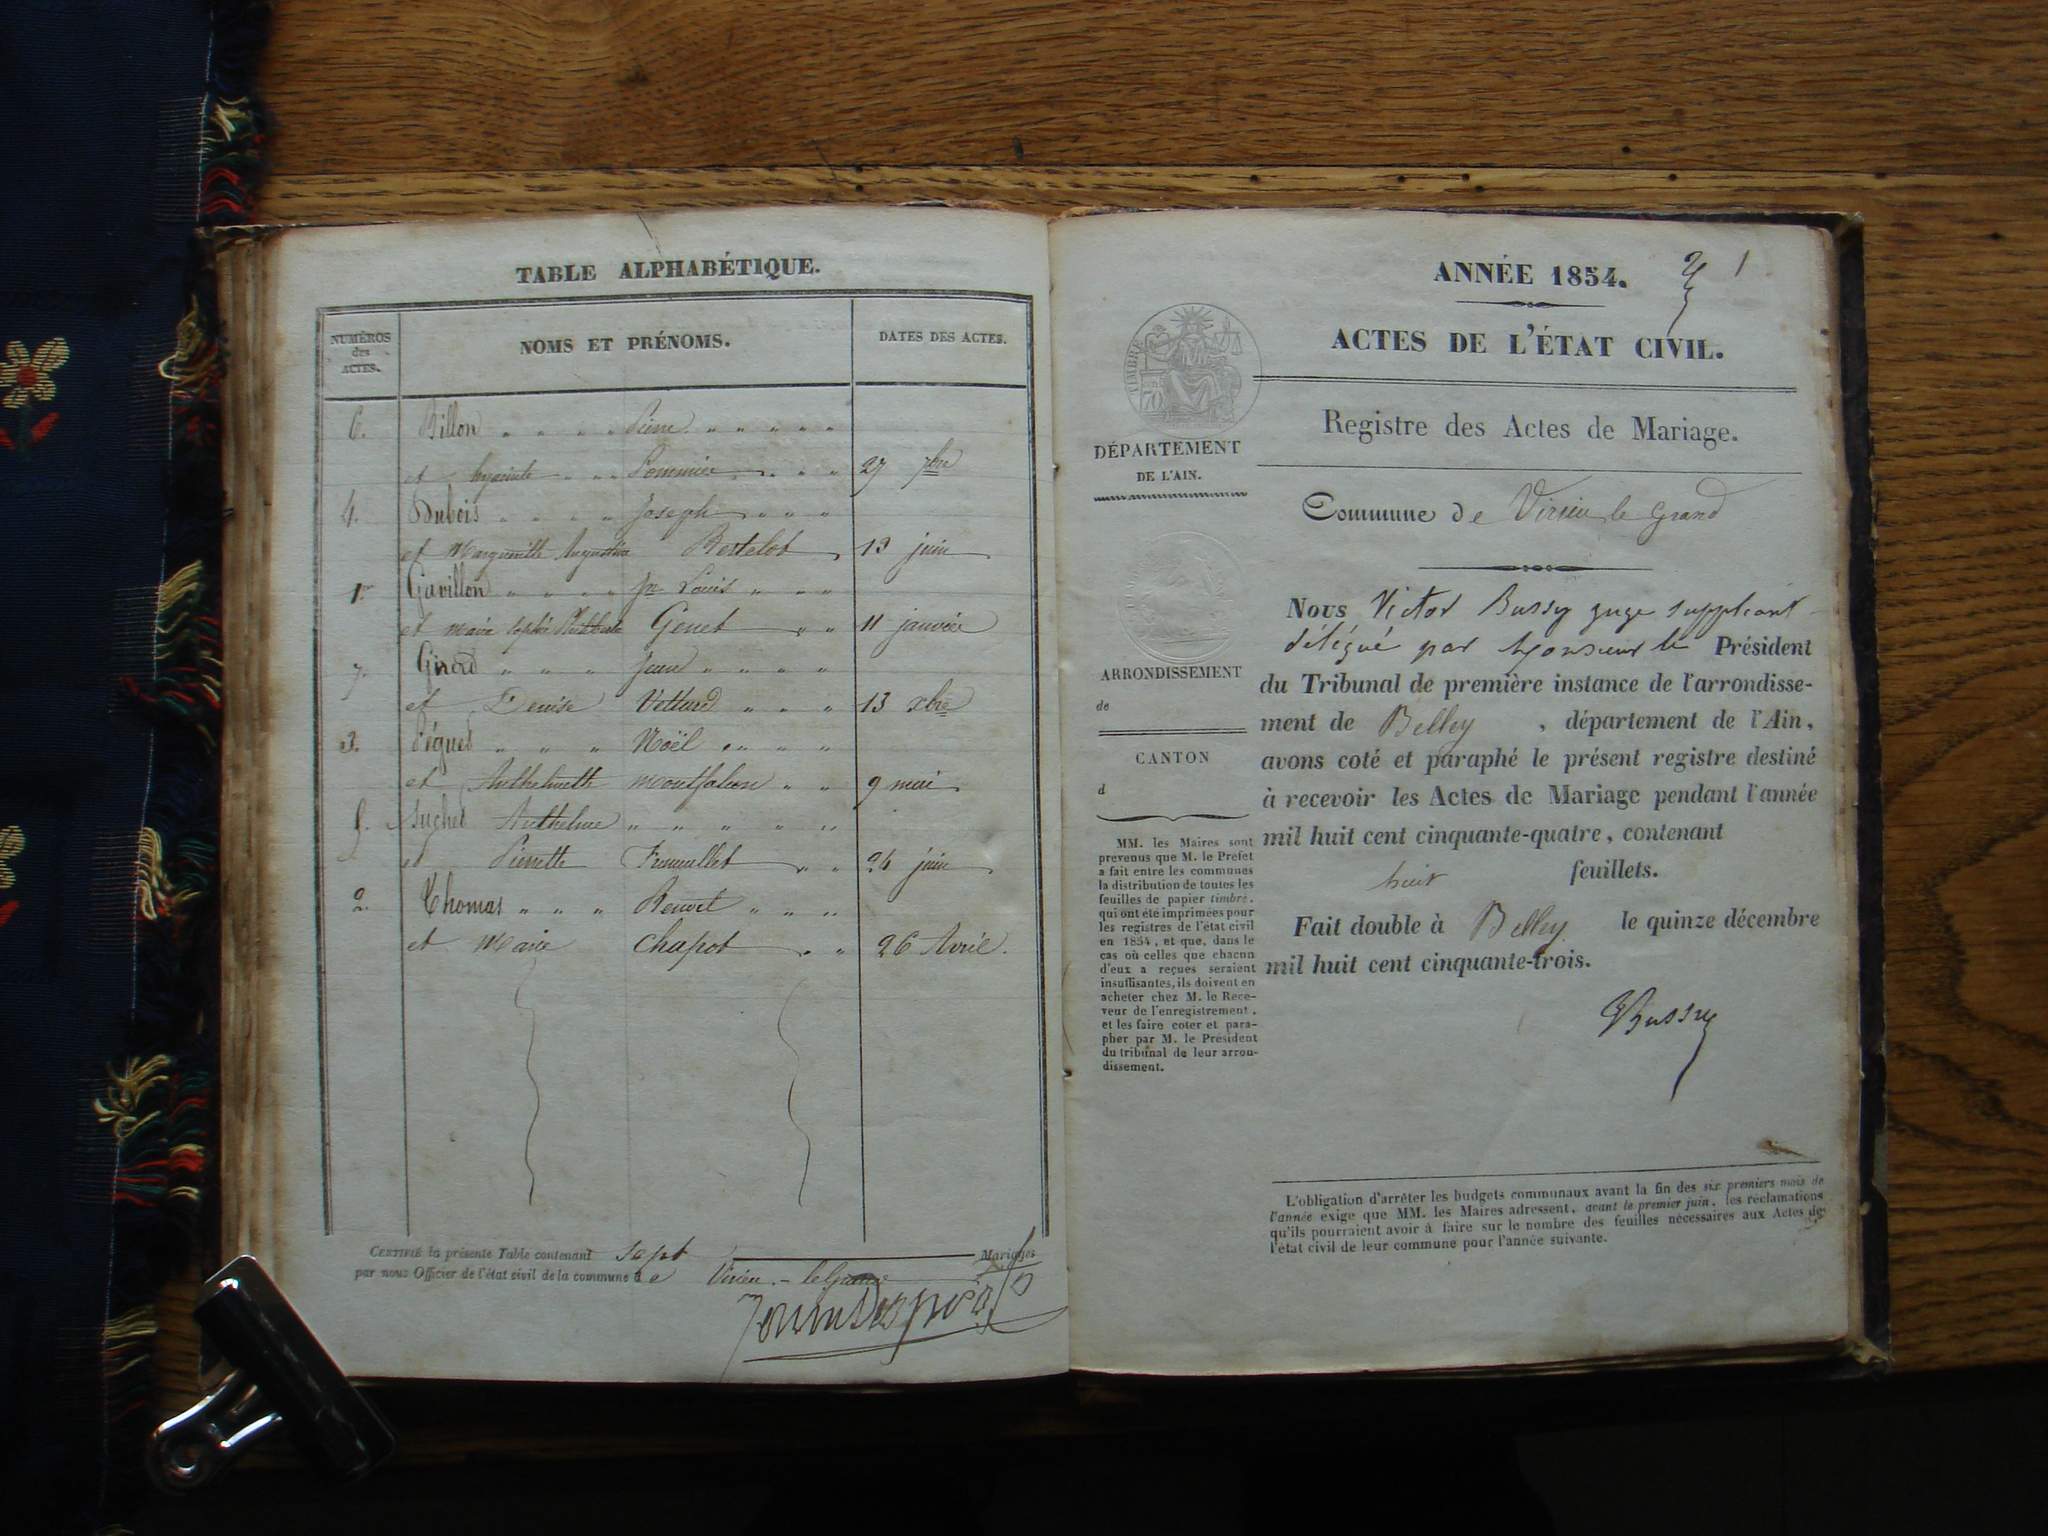 TABLE ALPHABÉTIQUE.
NUMÉROS
des
ACTES.
NOMS ET PRÉNOMS.
DATES DES ACTES.
6. Billon " " " " Pierre " " " " "
et hyacinte " " " Pommier " " " 27 7bre
4. Dubois " " " " Joseph " " "
et Marguerite Augustine Bertelot 13 juin
1er Gavillon " " " " Jn Louis " " "
et Marie Sophie Genet " " 11 janvier
7. Girard " " " Jean " " " "
et Denise Vettard " " " 13 xbre
3. Péguet " " " Noël " " " "
et Anthelmette Montfalcon " " 9 mai
5. Suchet Anthelme " " " " " "
et Pierrette " " 24 juin
2. Thomas " " " Benoit " " "
et Marie Chapot " " 26 Avril.
CERTIFIÉ la présente Table contenant sept Mariages
par nous Officier de l'état civil de la commune de Virieu-le-Grand
ANNÉE 1854.
1
ACTES DE L'ÉTAT CIVIL.
TIMBRE
70
Registre des Actes de Mariage.
DÉPARTEMENT
DE L'AIN.
Commune de Virieu le Grand
ARRONDISSEMENT
de
CANTON
d
MM. les Maires sont
prevenus que M. le Prefet
a fait entre les communes
la distribution de toutes les
feuilles de papier timbré,
qui ont été imprimées pour
les registres de l'état civil
en 1854, et que, dans le
cas où celles que chacun
d'eux a reçues seraient
insuffisantes, ils doivent en
acheter chez M. le Rece-
veur de l'enregistrement,
et les faire coter et para-
pher par M. le Président
du tribunal de leur arron-
dissement.
Nous Victor Bussy juge suppléant
délégué par Monsieur le Président
du Tribunal de première instance de l'arrondisse-
ment de Belley , département de l'Ain,
avons coté et paraphé le présent registre destiné
à recevoir les Actes de Mariage pendant l'année
mil huit cent cinquante-quatre, contenant
huit feuillets.
Fait double à Belley le quinze décembre
mil huit cent cinquante-trois.
VBussy
L'obligation d'arrêter les budgets communaux avant la fin des six premiers mois de
l'année exige que MM. les Maires adressent, avant le premier juin, les réclamations
qu'ils pourraient avoir à faire sur le nombre des feuilles nécessaires aux Actes de
l'état civil de leur commune pour l'année suivante.